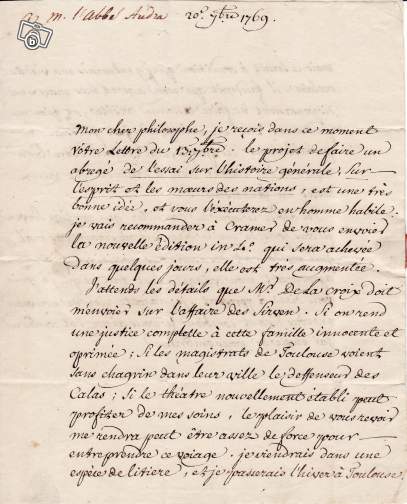 a m. l'abbé Audra 20e. 7bre 1769.
Mon cher philosophe, je reçois dans ce moment
Votre Lettre du 13 7bre. le projet de faire un
abregé de l'essai sur l'histoire générale, sur
l'esprit et les mœurs des nations, est une très
bonne idée, et vous l'exécuterez en homme habile.
je vais recommander à Cramer de vous envoier
la nouvelle édition in 4o. qui sera achevée
dans quelques jours, elle est très augmentée.
J'attends les détails que Mr. De La Croix doit
m'envoier sur l'affaire des Sirven. Si on rend
une justice complette à cette famille innocente et
oprimée; Si les magistrats de Toulouse voient
sans chagrin dans leur ville le deffenseur des
Calas; Si le théatre nouvellement établi peut
profiter de mes soins, le plaisir de vous revoir
me rendra peut être assez de force pour
entreprendre ce voiage. je viendrais dans une
espèce de litiere, et je passerais l'hiver à Toulouse.